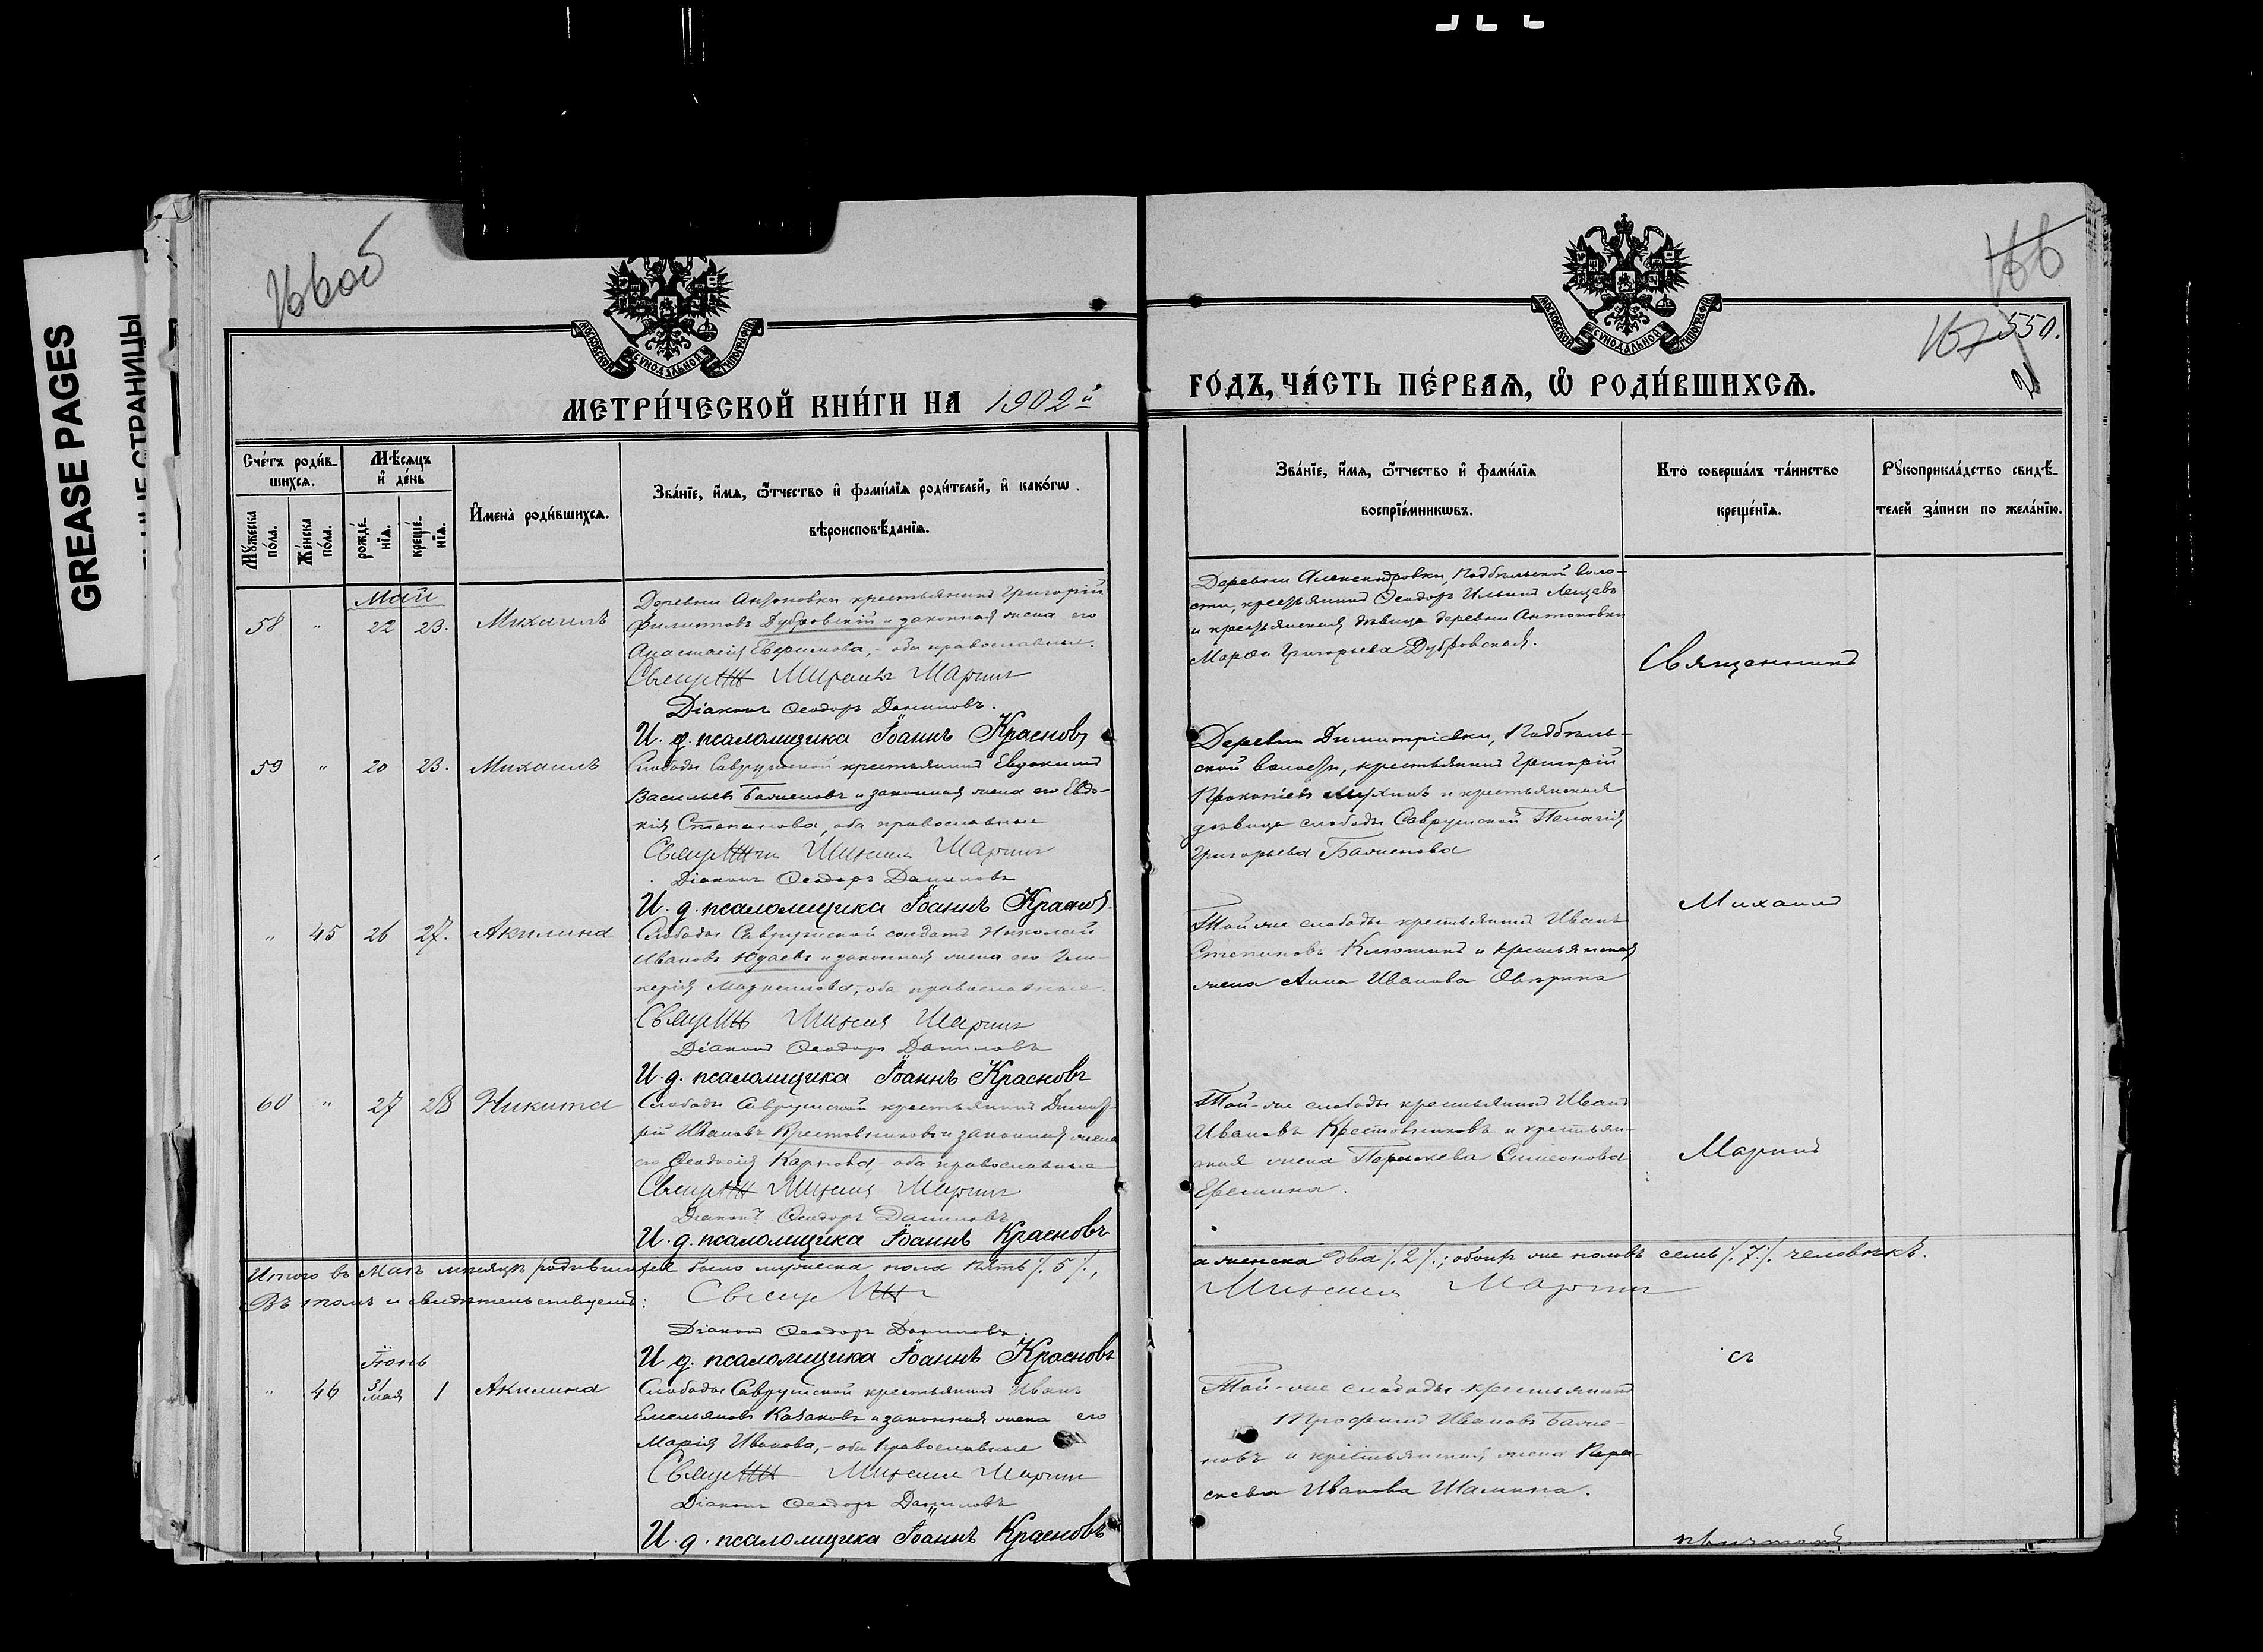 GREASE PAGES
СТРАНИЦЫ
166об
166
167
550.
МОСКОВСКОЙ СѴНОДАЛЬНОЙ ТИПОГРАФІИ
МОСКОВСКОЙ СѴНОДАЛЬНОЙ ТИПОГРАФІИ
МЕТРИ́ЧЕСКОЙ КНИ́ГИ НА 1902й
ГО́ДЪ, ЧА́СТЬ ПЕ́РВАѦ, Ѡ҆ РОДИ́ВШИХСѦ.
Сче́тъ роди́в-
шихсѧ.
Мꙋ́жеска по́ла.
Же́нска по́ла.
Мѣ́сѧцъ
и҆ де́нь
рожде́-
нїѧ.
креще́-
нїѧ.
И҆мена̀ роди́вшихсѧ.
Зва́нїе, и҆́мѧ, ѻ҆́тчество и҆ фами́лїѧ роди́телей, и҆ како́гѡ
вѣроисповѣ́данїѧ.
Зва́нїе, и҆́мѧ, ѻ҆́тчество и҆ фами́лїѧ
воспрїе́мникѡвъ.
Кто̀ соверша́лъ та́инство
креще́нїѧ.
Рꙋкоприкла́дство свидѣ́-
телей за́писи по жела́нїю.
Май
58 " 22 23. Михаилъ
Деревни Антоновки крестьянинъ Григорій
Филиповъ Дубровскій и законная жена его
Анастасія Ефримова, - оба православные.
Священникъ Михаилъ Маринъ
Діаконъ Ѳеодоръ Даниловъ.
И. д. псаломщика Іоаннъ Красновъ
Деревни Александровки, Подбѣльской воло-
сти, крестьянинъ Ѳеодоръ Ильинъ
и крестьянская дѣвица деревни Антоновки
Марѳа Григорьева Дубровская.
Священникъ
59 " 20 23. Михаилъ
Слободы Саврушской крестьянинъ Евдокимъ
Васильевъ Баженовъ и законная жена его Евдо-
кія Степанова, оба православные
Священникъ Михаилъ Маринъ
Діаконъ Ѳеодоръ Даниловъ
И. д. псаломщика Іоаннъ Красновъ.
Деревни Димитріевки, Подбѣль-
ской волости, крестьянинъ Григорій
Прокопіевъ Мухинъ и крестьянская
дѣвица слободы Саврушской Пелагія
Григорьева Баженова
Михаилъ
" 45 26 27. Акилина
Слободы Саврушской солдатъ Николай
Ивановъ Юдаевъ и законная жена его Гли-
керія Маркеллова, оба православные.
Священникъ Михаилъ Маринъ
Діаконъ Ѳеодоръ Даниловъ
И. д. псаломщика Іоаннъ Красновъ
Той же слободы крестьянинъ Иванъ
Степановъ Клюшинъ и крестьянская
жена Анна Иванова
60 " 27 28 Никита
Слободы Саврушской крестьянинъ Димит-
рій Ивановъ Крестовниковъ и законная жена
его Ѳеодосія Карпова, - оба православные
Священникъ Михаилъ Маринъ
Діаконъ Ѳеодоръ Даниловъ
И. д. псаломщика Іоаннъ Красновъ
Той-же слободы крестьянинъ Иванъ
Ивановъ Крестовниковъ и крестьян-
ская жена Параскева Симеонова
Еремина.
Маринъ
Итого въ Маѣ мѣсяцѣ родившихся было мужеска пола пять /. 5 /.,
а женска два /. 2 /.; обоихъ же половъ семь /. 7. /. человѣкъ.
Въ томъ и свидѣтельствуемъ: Священникъ
Михаилъ Маринъ
Діаконъ Ѳеодоръ Даниловъ.
И д. псаломщика Іоаннъ Красновъ
съ
Іюнь
" 46 31 мая 1 Акилина
Слободы Саврушской крестьянинъ Иванъ
Емельяновъ Казаковъ и законная жена его
Марія Иванова, - оба православные
Священникъ Михаилъ Маринъ
Діаконъ Ѳеодоръ Даниловъ
И. д. псаломщика Іоаннъ Красновъ
Той-же слободы крестьянинъ
Трофимъ Ивановъ Баже-
новъ и крестьянская жена Пара-
скева Иванова Шамина.
причтомъ